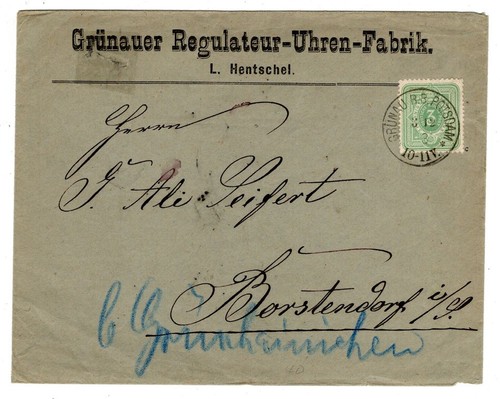 Grünauer Regulateur-Uhren-Fabrik.
L. Hentschel.
GRÜNAU R.B. POTSDAM
10-11V.
3
Herrn
Ali Seifert
Borstendorf i/S.
b Grünhainichen